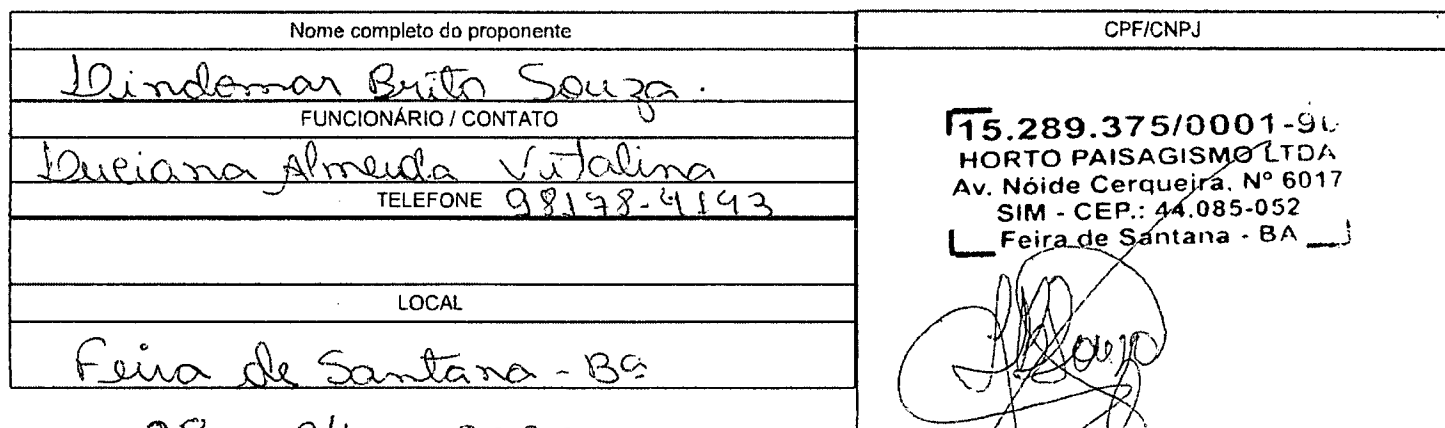 Nome completo do proponente
Lindomar Brito Souza.
FUNCIONÁRIO / CONTATO
Luciana Almeida Vitalina
TELEFONE 98178-4143
LOCAL
Feira de Santana - Ba
CPF/CNPJ
15.289.375/0001-9
HORTO PAISAGISMO LTDA
Av. Nóide Cerqueira, Nº 6017
SIM - CEP.: 44.085-052
Feira de Santana - BA